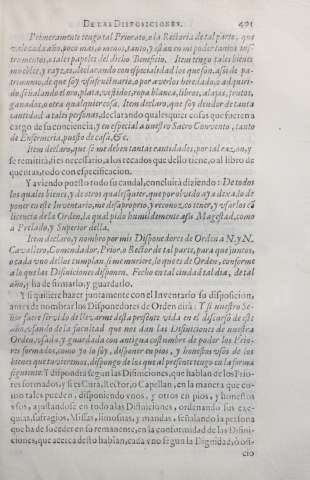 DE LAS DISPOSICIONES. 491
Primeramente tengo tal Priorato, o la Rectoria de tal parte, que
vale cada año, poco mas, o menos, tanto, y están en mi poder tantos ins-
trumentos, o tales papeles del dicho Beneficio. Item tengo tales bienes
muebles, y rayzes, declarando con especialidad los que son, assi de pa-
trimonio, de que soy usufructuario, o por averlos heredado, o adquiri-
do, señalando el oro, plata, vestidos, ropa blanca, libros, alajas, frutos,
ganados, o otra qualquier cosa. Item declaro, que soy deudor de tanta
cantidad a tales personas, declarando qualesquier cosas que fueren a
cargo de su conciencia, y en especial a nuestro Sacro Convento, tanto
de Enfermeria, puesto de casa, &c.
Item declaro, que se me deben tantas cantidades, por tal razon, y
se remitirá, si es necessario, a los recados que dello tiene, o al libro de
quentas, todo con especificacion.
Y aviendo puesto todo su caudal, concluirá diziendo: De todos
los quales bienes, y de otros qualesquier, que por olvido aya dexado de
poner en este Inventario, me desaproprio, y reconozco tener, y usarlos có
licencia de la Orden, la qual pido humildemente a su Magestad, como
a Prelado, y Superior della.
Item declaro, y nombro por mis Disponedores de Orden a N. y N.
Cavallero, Comendador, Prior, o Rector de tal parte, para que juntos,
o cada uno dellos cumplan, si me muriere, lo que es de Orden, conforme
a lo que las Difiniciones disponen. Fecho en tal ciudad tal dia, de tal
año, y ha de firmarlo, y guardarlo.
Y si quiere hazer juntamente con el Inventario su disposicion,
antes de nombrar los Disponedores de Orden dirá: Y si nuestro Se-
ñor fuere servido de llevarme desta presente vida en el discurso de este
año, usando de la facultad que nos dan las Difiniciones de nuestra
Orden, usado, y guardada con antigua costumbre de poder los Prio-
res formados, como yo lo soy, disponer en pios, y honestos usos de los
bienes que tuvieremos, dispongo de los que al presente tengo en la forma
siguiente: Y dispondrá segun las Difiniciones, que hablan de los Prio-
res formados, y si es Cura, Rector, o Capellan, en la manera que co-
mo tales pueden, disponiendo unos, y otros en pios, y honestos
usos, ajustandose en todo a las Difiniciones, ordenando sus exe-
quias, sufragios, Missas, limosnas, y mandas, señalando la persona
que ha de suceder en su remanente, en la conformidad de las Difini-
ciones, que acerca desto hablan, cada uno segun la Dignidad, ò ofi-
cio